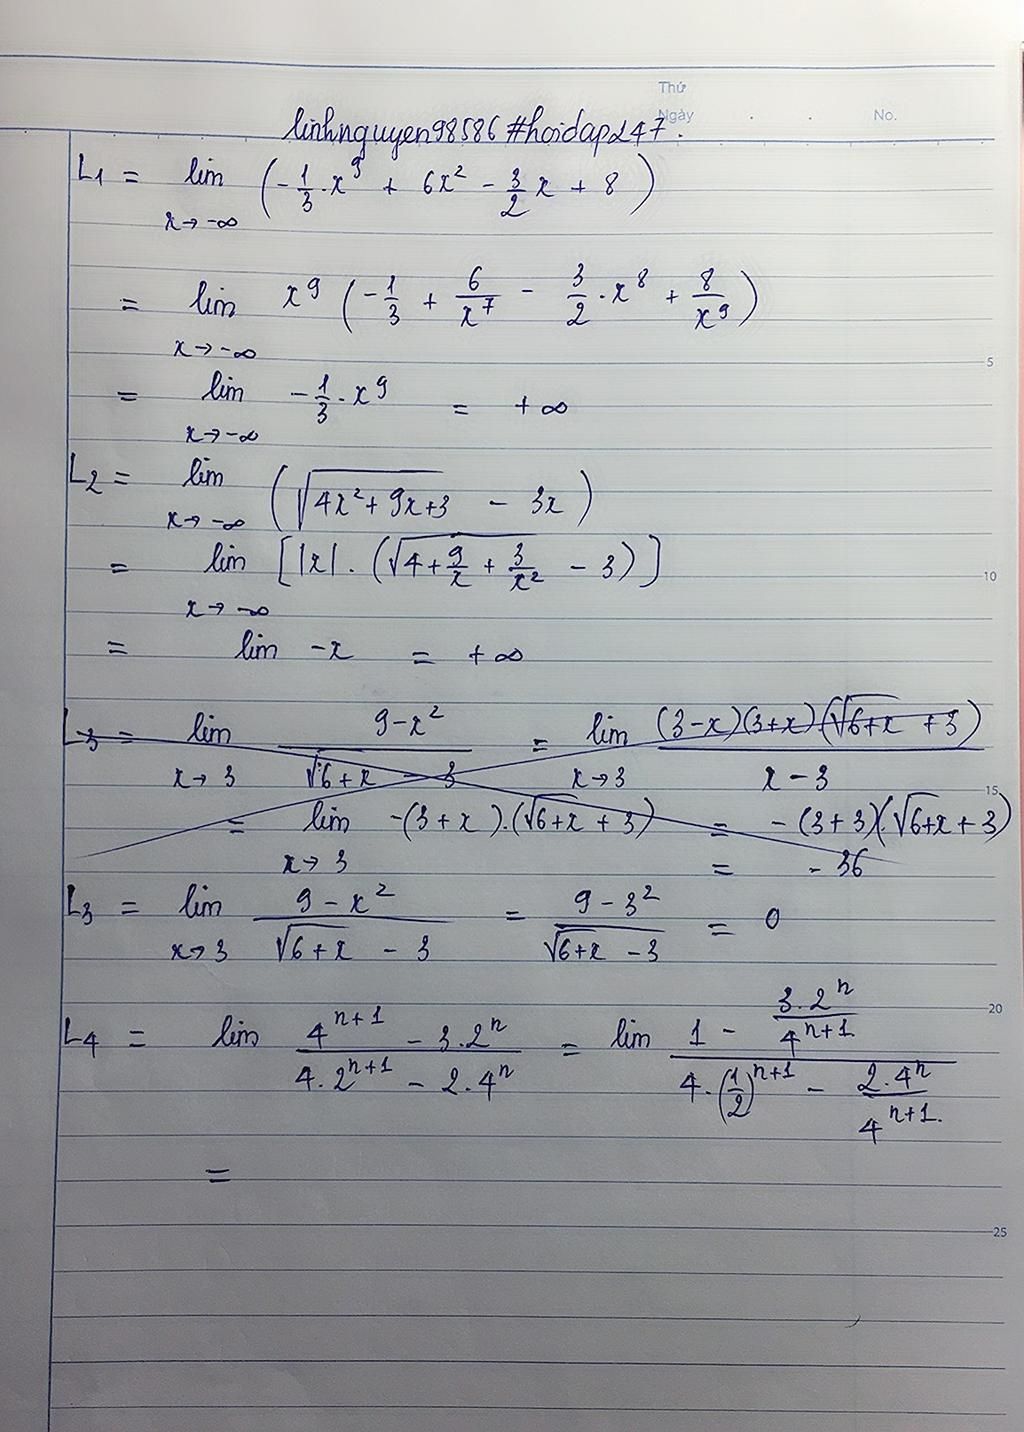 Thứ
Ngày . . No.
linhnguyen98586 #hoidap247.
L1 = lim x→-∞ (-1/3 . x^9 + 6x² - 3/2 x + 8)
= lim x→-∞ x^9 (-1/3 + 6/x^7 - 3/2 . x^8 + 8/x^9)
5
= lim x→-∞ -1/3 . x^9 = +∞
L2 = lim x→-∞ (√(4x²+9x+3) - 3x)
= lim x→-∞ [|x| . (√(4+9/x+3/x²) - 3)]
10
= lim -x = +∞
L3 = lim x→3 (9-x²)/(√(6+x) - 3) = lim x→3 (3-x)(3+x).(√(6+x) + 3)/(x-3)
15
= lim x→3 -(3+x).(√(6+x) + 3) = -(3+3)(√(6+x) + 3)
= -36
L3 = lim x→3 (9-x²)/(√(6+x) - 3) = (9-3²)/(√(6+x) - 3) = 0
20
L4 = lim (4^(n+1) - 3.2^n)/(4.2^(n+1) - 2.4^n) = lim (1 - (3.2^n)/(4^(n+1)))/(4.(1/2)^(n+1) - (2.4^n)/(4^(n+1)))
=
25